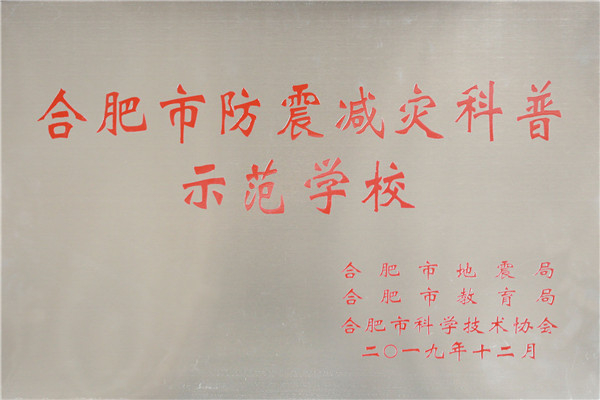 合肥市防震减灾科普
示范学校
合肥市地震局
合肥市教育局
合肥市科学技术协会
二〇一九年十二月